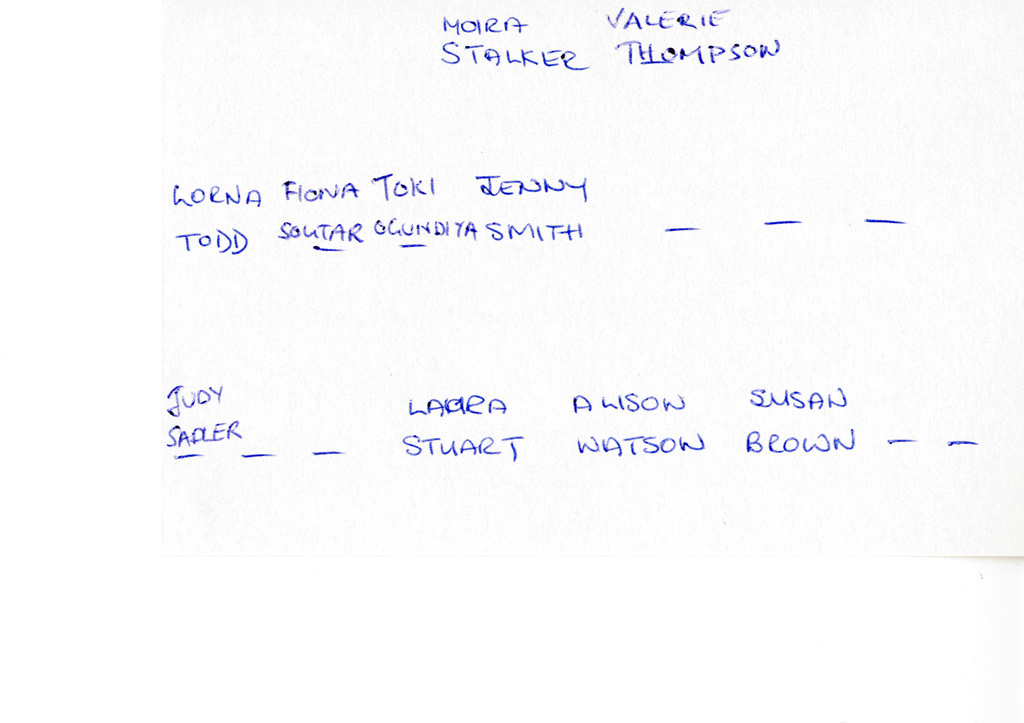 MOIRA VALERIE
STALKER THOMPSON
LORNA FIONA TOKI JENNY
TODD SOUTAR OGUNDIYA SMITH — — —
JUDY LAURA ALISON SUSAN
SADLER — — STUART WATSON BROWN — —